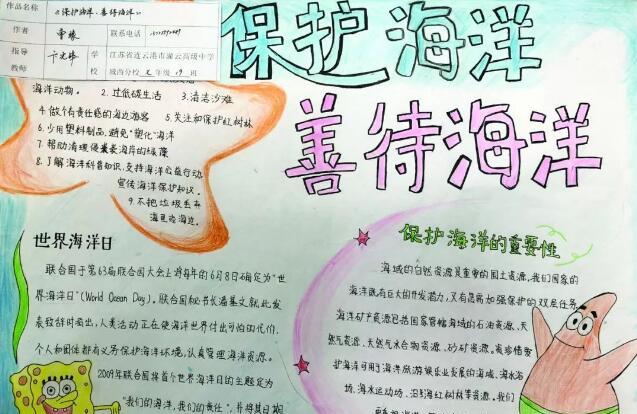 作品名称 《保护海洋,善待海洋》
作者 联系电话
指导教师 学校 江苏省连云港市灌云高级中学
城西分校 七年级 19 班
保护海洋
善待海洋
海洋动物。 2. 过低碳生活 3. 清洁沙滩
4. 做个有责任感的海边游客 5. 关注和保护红树林
6. 少用塑料制品,避免"塑化"海洋
7. 帮助清理侵袭海岸的绿藻
8. 了解海洋科普知识,支持海洋公益行动
宣传海洋保护知识。
9. 不把垃圾丢弃
海里或海边。
世界海洋日
联合国于第63届联合国大会上将每年的6月8日确定为"世
界海洋日"(World Ocean Day)。联合国秘书长潘基文就此发
表致辞时指出,人类活动正在使海洋世界付出可怕的代价,
个人和团体都有义务保护海洋环境,认真管理海洋资源。
2009年联合国将首个世界海洋日的主题定为
"我们的海洋,我们的责任",并将其日期
保护海洋的重要性
海域的自然资源是重要的国土资源,我们国家的
海洋既有巨大的开发潜力,又有急需加强保护的双层任务
海洋矿产资源包括国家管辖海域的石油资源、天
然气资源、天然气水合物资源、砂矿资源。我要珍惜
护海洋可用于海洋旅游娱乐业发展的海域、海水浴
场、海水运动场、沿海红树林等资源。我们